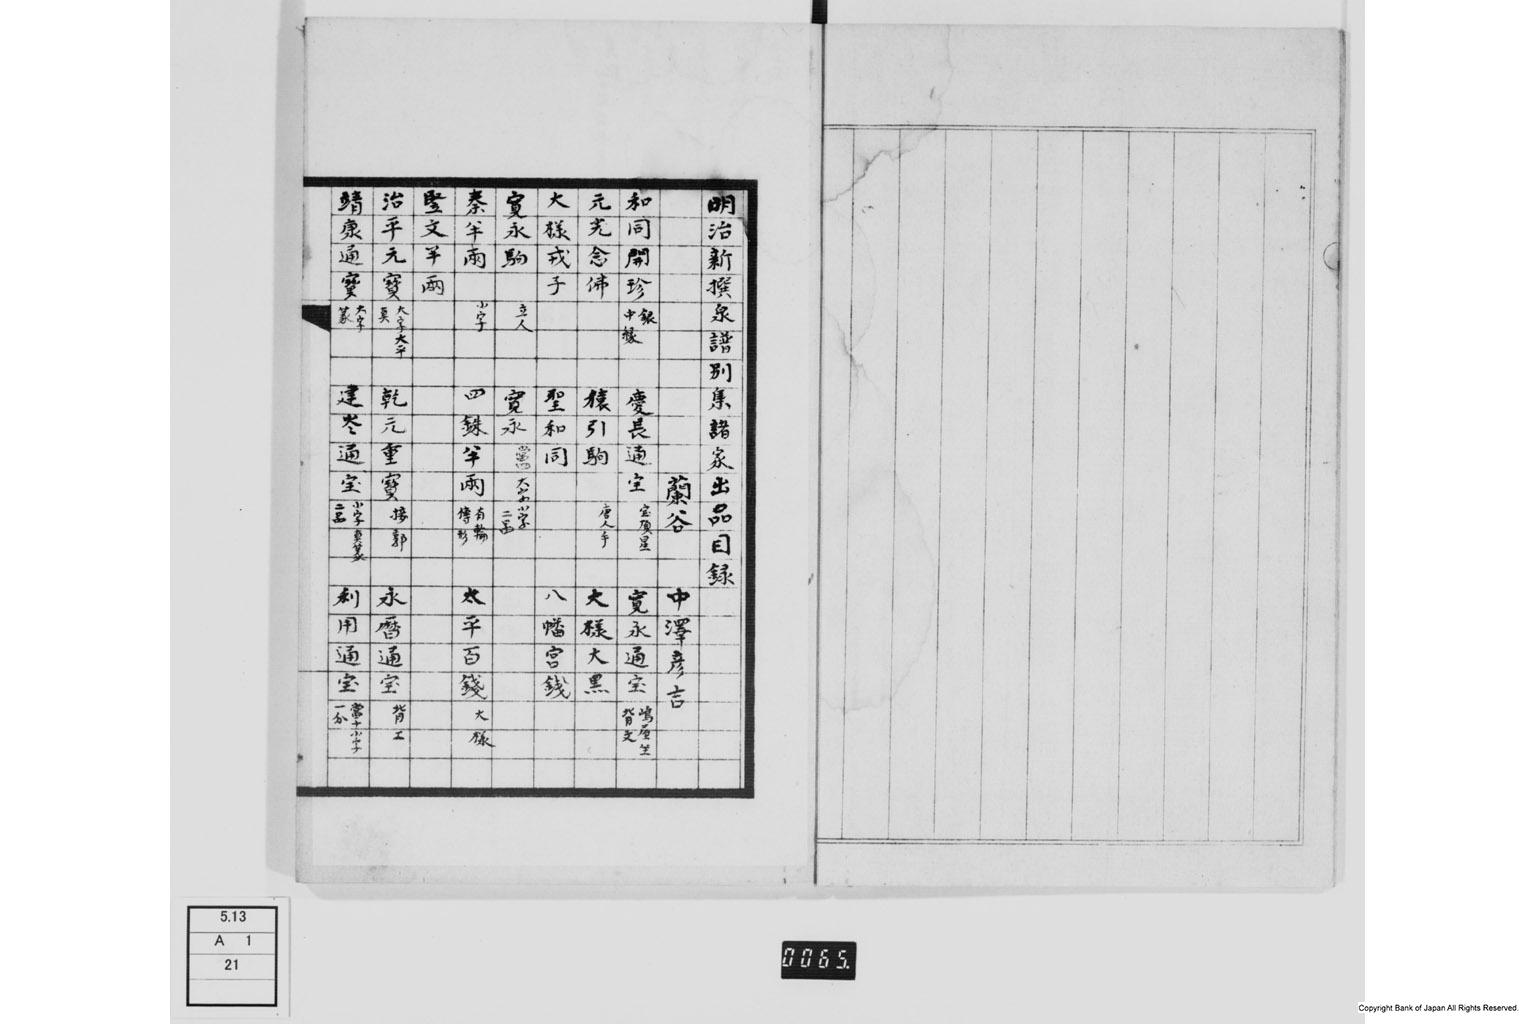 明治新撰泉譜別集諸家出品目録
蘭谷 中澤彦吉
和同開珍 銀中様 慶長通宝 宝頂星 寛永通宝 嶋屋坐背文
元光念佛 猿引駒 唐人手 大様大黒
大様戎子 聖和同 八幡宮銭
寛永駒 立人 寛永 當四 大字小字二品
秦半両 小字 四銖半両 有輪傳形 太平百錢 大様
竪文半両
治平元寶 大字大平真 乾元重寶 接郭 永暦通宝 背工
靖康通寶 大字篆 建炎通宝 小字真篆二品 利用通宝 當十小字一分
5.13
A 1
21
0065.
Copyright Bank of Japan All Rights Reserved.